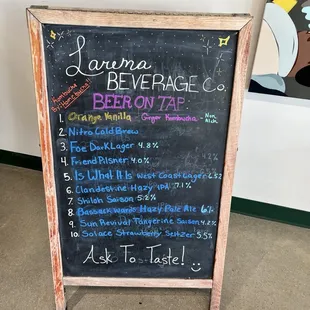 Larema
BEVERAGE Co.
BEER ON TAP
Kombucha
By: Homebucha
1. Orange Vanilla - Ginger Kombucha - Non Alch
2 Nitro Cold Brew
3. Foe Dark Lager 4.8%
4. Friend Pilsner 4.0%
5. Is What It Is West Coast Lager 6.5%
6. Clandestine Hazy IPA 7.1%
7. Shiloh Saison 5.2%
8 Bassackwards Hazy Pale Ale 6%
9. Sun Revival Tangerine Saison 4.2%
10. Solace Strawberry Seltzer 5.5%
Ask To Taste!